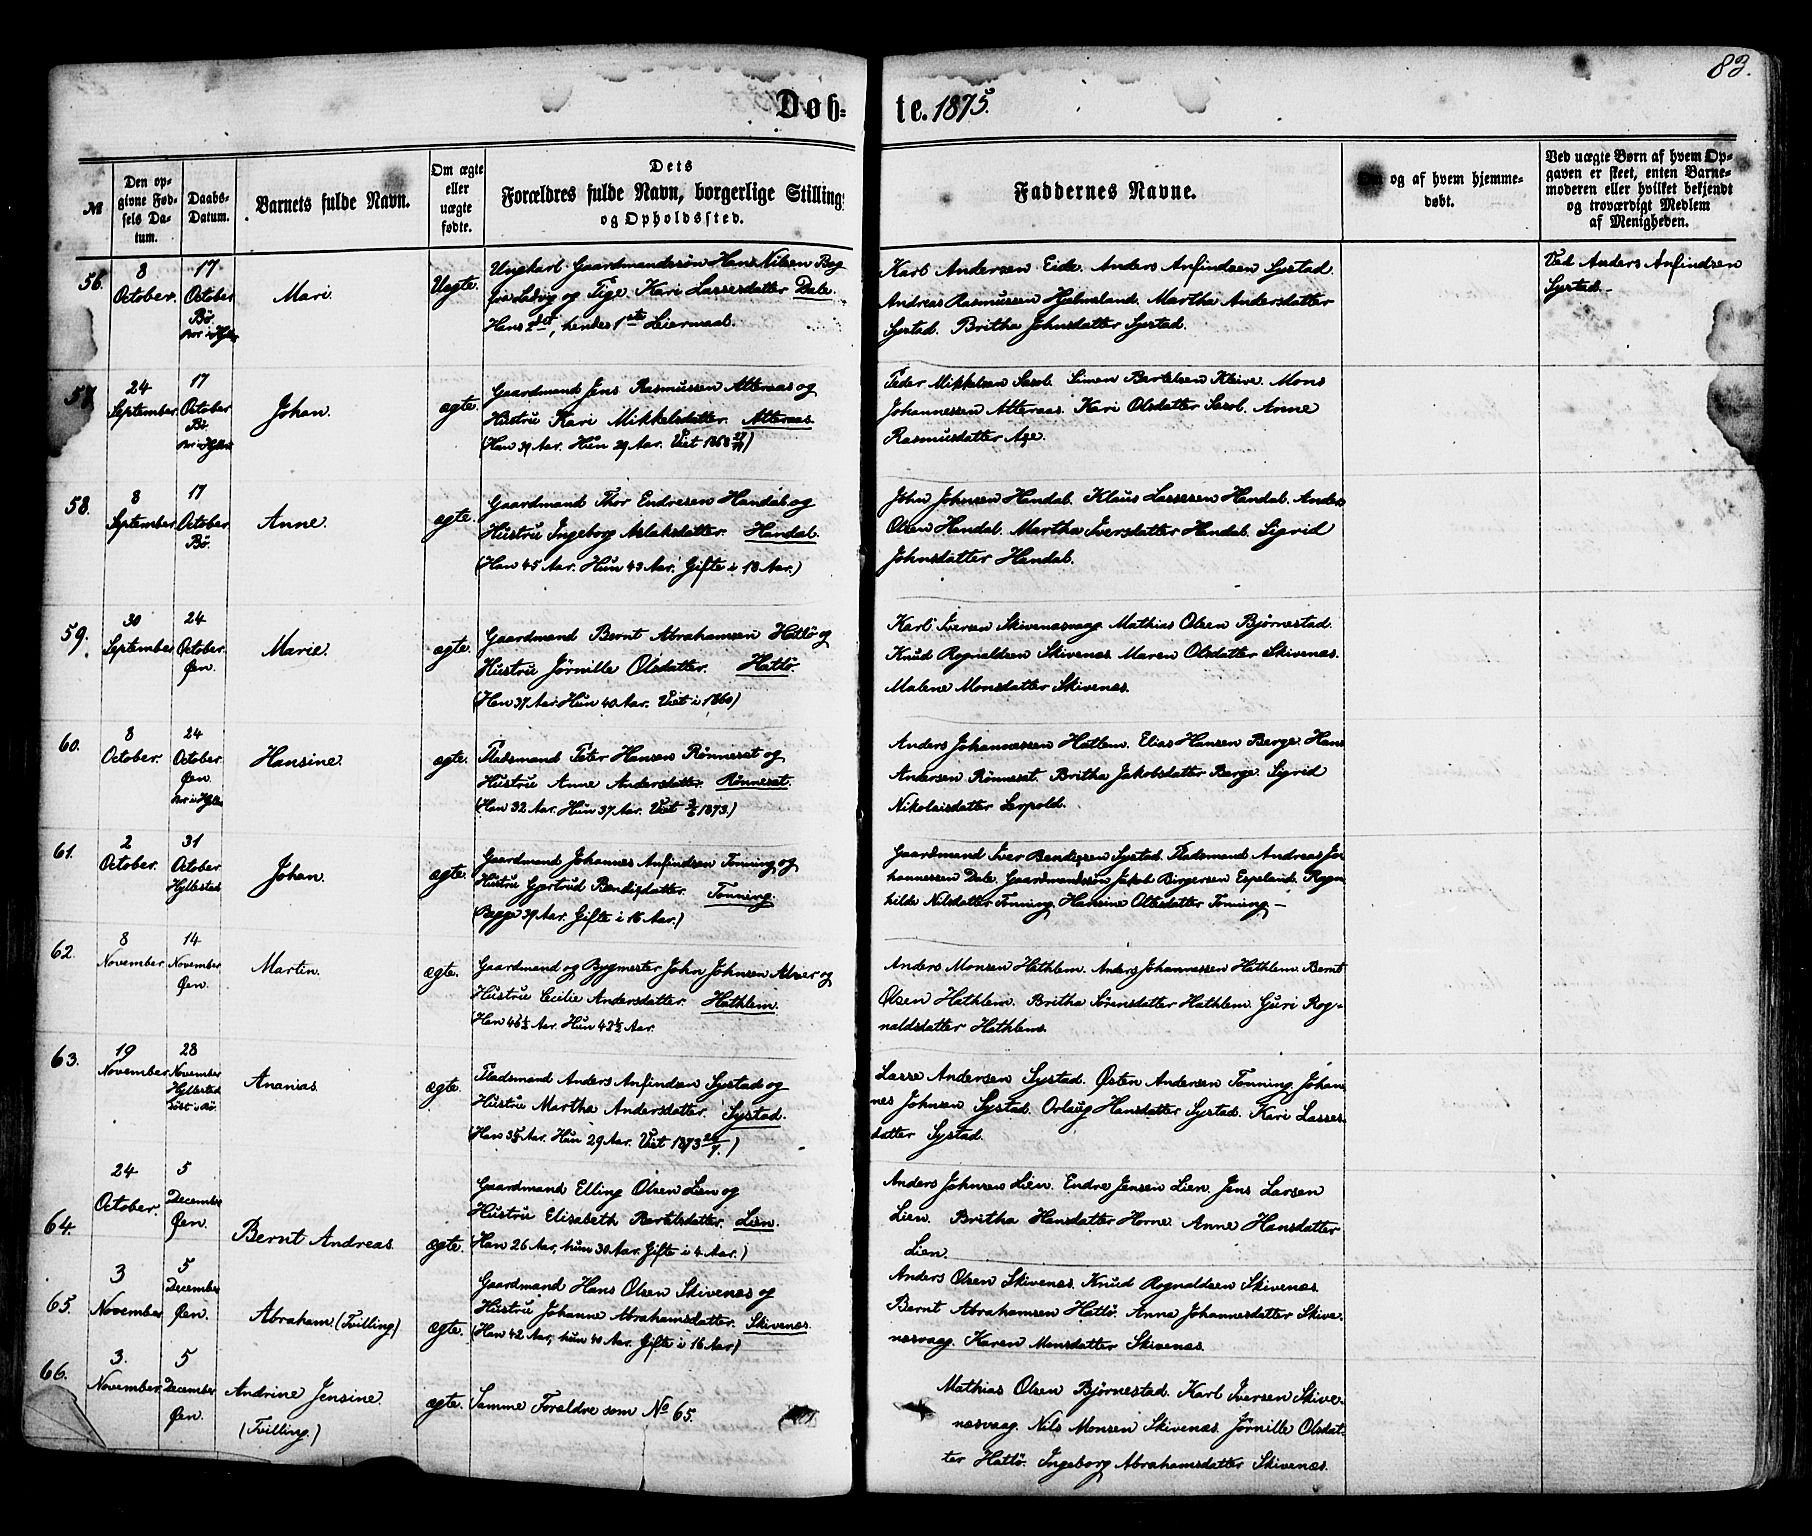 83.
Døb-
te. 1875.
№
Den op-
givne Fød-
sels Da-
tum.
Daabs-
Datum.
Barnets fulde Navn.
Om ægte
eller
uægte
fødte.
Dets
Forældres fulde Navn, borgerlige Stilling
og Opholdssted.
Faddernes Navne.
og af hvem hjemme-
døbt.
Ved uægte Børn af hvem Op-
gaven er skeet, enten Barne-
moderen eller hvilket bekjendt
og troværdigt Medlem
af Menigheden.
56.
8
October.
17
October
Bø
Mari.
Uægte.
Ungkarl Gaardmandssøn Hans Nilsen Bø
fra Ladvig og Pige Kari Lassesdatter Dale.
Hans 2det, hendes 1ste Leiermaal.
Karl Andersen Eide. Anders Anfindsen Systad.
Andreas Rasmussen Hjelmeland. Martha Andersdatter
Systad. Britha Johnsdatter Systad.
Ved Anders Anfindsen
Systad.-
57
24
September.
17
October
Bø.
Johan.
ægte.
Gaardmand Jens Rasmussen Atteraas og
Hustru Kari Mikkelsdatter. Atteraas.
(Han 39 Aar. Hun 29 Aar. Viet 1868
Peder Mikkelsen Sæsol. Simen Bertelsen Kleive. Mons
Johannessen Atteraas. Kari Olsdatter Sæsol. Anne
Rasmusdatter Aae.
58.
8
September.
17
October
Bø.
Anne.
ægte.
Gaardmand Thor Endresen Handal og
Hustru Ingeborg Aslaksdatter. Handal.
(Han 45 Aar. Hun 43 Aar. Gifte i 18 Aar.)
John Johnsen Handal. Klaus Lassesen Handal. Anders
Olsen Handal. Martha Iversdatter Handal. Sigrid
Johnsdatter Handal.
59.
30
September.
24
October.
Øen.
Marie.
ægte.
Gaardmand Bernt Abrahamsen Hatlø og
Hustru Jørnille Olsdatter. Hatlø.
(Han 37 Aar. Hun 40 Aar. Viet i 1860)
Karl Iversen Skivenæsvaag. Mathias Olsen Bjørnestad.
Knud Rognaldsen Skivenæs. Maren Olsdatter Skivenæs.
Malene Monsdatter Skivenæs.
60.
8
October.
24
October
Øen.
Hansine.
ægte.
Pladsmand Peter Hansen Rønneset og
Hustru Anne Andersdatter. Rønneset.
(Han 32 Aar. Hun 37 Aar. Viet 1873.)
Anders Johannessen Hatlem. Elias Hansen Berge. Hans
Andersen Rønneset. Britha Jakobsdatter Berge. Sigrid
Nikolaisdatter Leopold.
61.
2
October.
31
October
Hyllestad
Johan.
ægte.
Gaardmand Johannes Anfindsen Tønning og
Hustru Gjertrud Bendixdatter. Tønning.
(Begge 39 Aar. Gifte i 16 Aar.)
Gaardmand Iver Bendixsen Systad. Pladsmand Andreas Jo-
hannessen Dale. Gaardmandssøn Jakob Birgersen Espeland. Rogn-
hilde Nilsdatter Tønning. Hansine Ottesdatter Tønning.-
62.
8
November.
14
November
Øen.
Martin.
ægte.
Gaardmand og Bygmester John Johnsen Alver og
Hustru Cecilie Andersdatter. Hathlem.
(Han 46½ Aar. Hun 42½ Aar.
Anders Monsen Hathlem. Anders Johannessen Hathlem. Bernt
Olsen Hathlem. Britha Sørensdatter Hathlem. Guri Rog-
naldsdatter Hathlem.
63.
19
November.
28
November
Hyllestad
Ananias.
ægte.
Pladsmand Anders Anfindsen Systad og
Hustru Martha Andersdatter. Systad.
(Han 35 Aar. Hun 29 Aar. Viet 1873
Lasse Andersen Systad. Østen Andersen Tønning. Johan-
nes Johnsen Systad. Orlaug Hansdatter Systad. Kari Lasses-
datter Systad.
64.
24
October.
5
December
Øen.
Bernt Andreas.
ægte.
Gaardmand Elling Olsen Lien og
Hustru Elisabeth Bertelsdatter. Lien.
(Han 26 Aar, hun 30 Aar. Gifte i 4 Aar.)
Anders Johnsen Lien. Endre Jensen Lien. Jens Larsen
Lien. Britha Hansdatter Horne. Anne Hansdatter
Lien.
65.
3
November
5
December
Øen.
Abraham (Tvilling)
ægte.
Gaardmand Hans Olsen Skivenæs og
Hustru Johanne Abrahamsdatter. Skivenæs.
(Han 42 Aar, hun 40 Aar. Gifte i 16 Aar)
Anders Olsen Skivenæs. Knud Rognaldsen Skivenæs.
Bernt Abrahamsen Hatlø. Anna Johannesdatter Skive-
næsvaag. Karen Monsdatter Skivenæs.
66.
3.
November.
5
December
Øen.
Andrine Jensine.
(Tvilling.)
ægte.
Samme Forældre som № 65.
Mathias Olsen Bjørnestad. Karl Iversen Skive-
næsvaag. Nils Monsen Skivenæs. Jørnille Olsdat-
ter Hatlø. Ingeborg Abrahamsdatter Skivenæs.